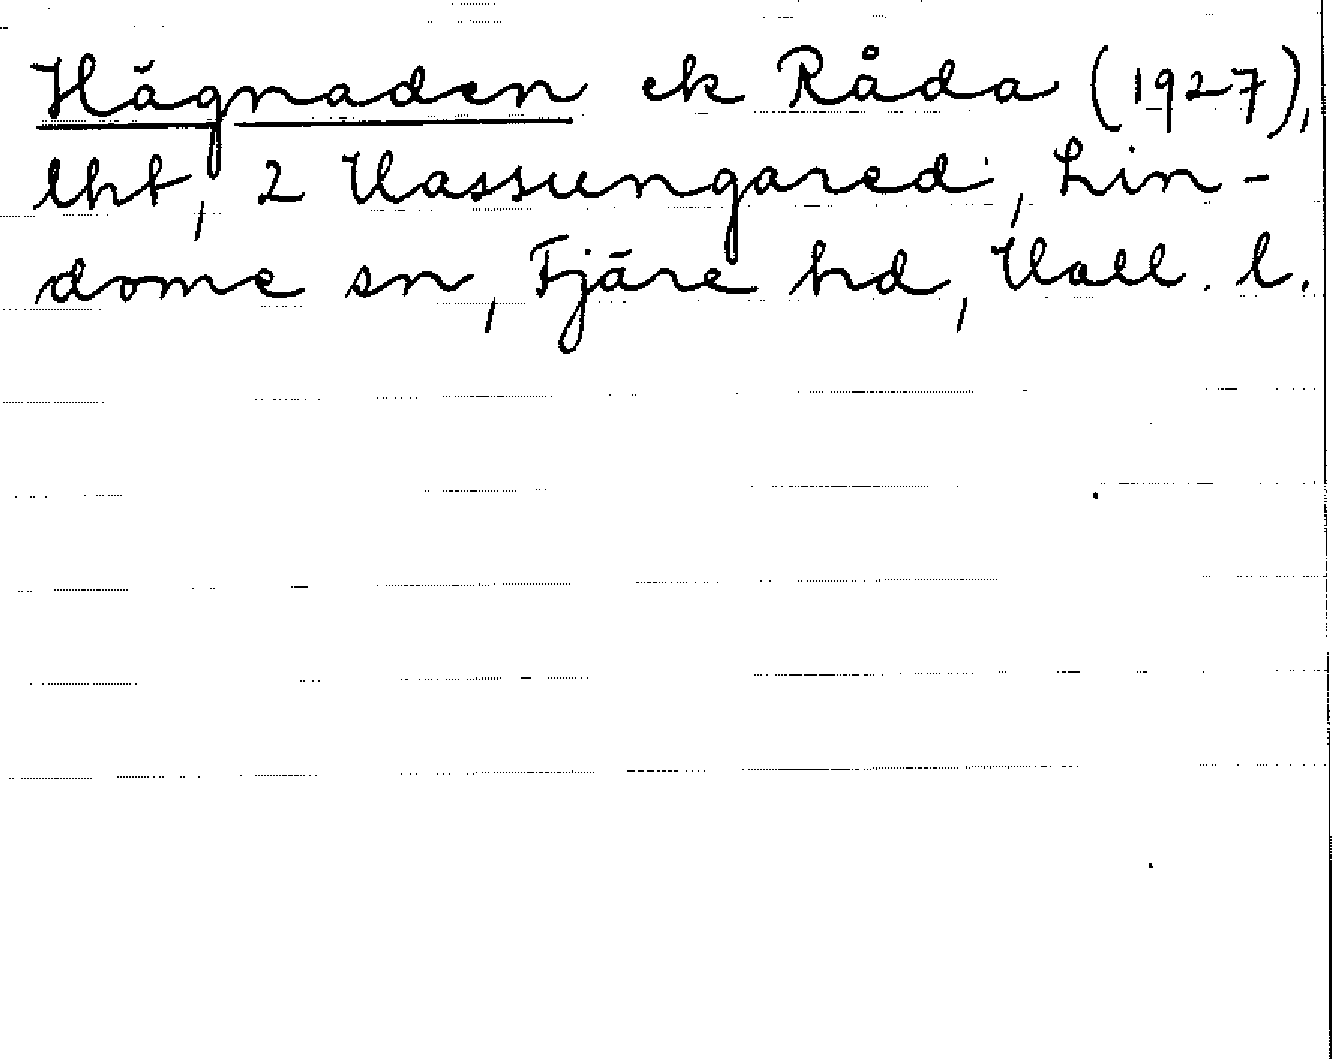 Hägnaden ek Råda (1927),
lht, 2 Hassungared, Lin-
dome sn, Fjäre hd, Hall. l.